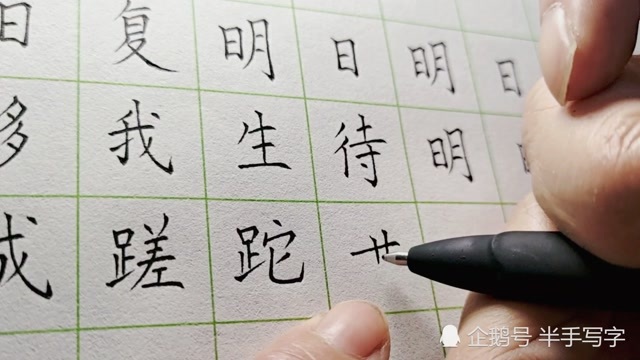 日复明日明日
多我生待明
成蹉跎
企鹅号 半手写字